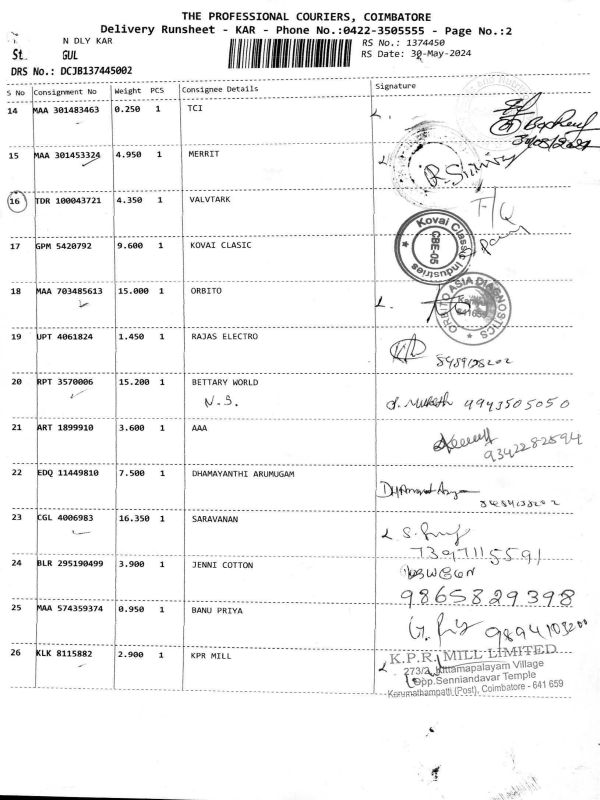 THE PROFESSIONAL COURIERS, COIMBATORE
Delivery Runsheet - KAR - Phone No.:0422-3505555 - Page No.:2
N DLY KAR
RS No.: 1374450
St. GUL
RS Date: 30-May-2024
DRS No.: DCJB137445002
S No Consignment No Weight PCS Consignee Details Signature
14 MAA 301483463 0.250 1 TCI
15 MAA 301453324 4.950 1 MERRIT
16 TDR 100043721 4.350 1 VALVTARK
17 GPM 5420792 9.600 1 KOVAI CLASIC
Kovai Classic Industries
CBE-05
18 MAA 703485613 15.000 1 ORBITO
ORBITO ASIA DIAGNOSTICS
19 UPT 4061824 1.450 1 RAJAS ELECTRO
20 RPT 3570006 15.200 1 BETTARY WORLD
N.S.
9943505050
21 ART 1899910 3.600 1 AAA
9342282594
22 EDQ 11449810 7.500 1 DHAMAYANTHI ARUMUGAM
23 CGL 4006983 16.350 1 SARAVANAN
7397115591
24 BLR 295190499 3.900 1 JENNI COTTON
9865829398
25 MAA 574359374 0.950 1 BANU PRIYA
26 KLK 8115882 2.900 1 KPR MILL
K.P.R. MILL LIMITED
273/3, Kittamapalayam Village
Opp.Senniandavar Temple
Karumathampatti (Post), Coimbatore - 641 659